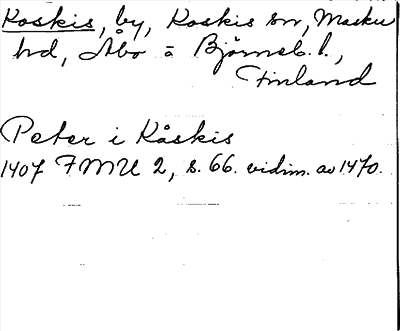 Koskis, by, Koskis sn, Masku
hd, Åbo o Björneb. l.,
Finland
Peter i Kåskis
1407 FMU 2, s. 66. vidim. av 1470.